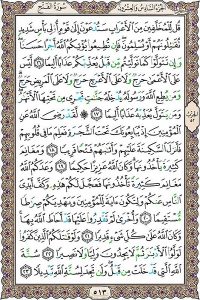 الجزء السادس والعشرون سورة الفتح
قُل لِّلْمُخَلَّفِينَ مِنَ ٱلْأَعْرَابِ سَتُدْعَوْنَ إِلَىٰ قَوْمٍ أُو۟لِى بَأْسٍ شَدِيدٍ
تُقَـٰتِلُونَهُمْ أَوْ يُسْلِمُونَ فَإِن تُطِيعُوا۟ يُؤْتِكُمُ ٱللَّهُ أَجْرًا حَسَنًا
وَإِن تَتَوَلَّوْا۟ كَمَا تَوَلَّيْتُم مِّن قَبْلُ يُعَذِّبْكُمْ عَذَابًا أَلِيمًا ١٦ لَّيْسَ
عَلَى ٱلْأَعْمَىٰ حَرَجٌ وَلَا عَلَى ٱلْأَعْرَجِ حَرَجٌ وَلَا عَلَى ٱلْمَرِيضِ حَرَجٌ
وَمَن يُطِعِ ٱللَّهَ وَرَسُولَهُۥ يُدْخِلْهُ جَنَّـٰتٍ تَجْرِى مِن تَحْتِهَا ٱلْأَنْهَـٰرُ
وَمَن يَتَوَلَّ يُعَذِّبْهُ عَذَابًا أَلِيمًا ١٧ ۞ لَّقَدْ رَضِىَ ٱللَّهُ عَنِ
ٱلْمُؤْمِنِينَ إِذْ يُبَايِعُونَكَ تَحْتَ ٱلشَّجَرَةِ فَعَلِمَ مَا فِى قُلُوبِهِمْ
فَأَنزَلَ ٱلسَّكِينَةَ عَلَيْهِمْ وَأَثَـٰبَهُمْ فَتْحًا قَرِيبًا ١٨ وَمَغَانِمَ
كَثِيرَةً يَأْخُذُونَهَا وَكَانَ ٱللَّهُ عَزِيزًا حَكِيمًا ١٩ وَعَدَكُمُ ٱللَّهُ
مَغَانِمَ كَثِيرَةً تَأْخُذُونَهَا فَعَجَّلَ لَكُمْ هَـٰذِهِۦ وَكَفَّ أَيْدِىَ
ٱلنَّاسِ عَنكُمْ وَلِتَكُونَ ءَايَةً لِّلْمُؤْمِنِينَ وَيَهْدِيَكُمْ صِرَٰطًا
مُّسْتَقِيمًا ٢٠ وَأُخْرَىٰ لَمْ تَقْدِرُوا۟ عَلَيْهَا قَدْ أَحَاطَ ٱللَّهُ بِهَا
وَكَانَ ٱللَّهُ عَلَىٰ كُلِّ شَىْءٍ قَدِيرًا ٢١ وَلَوْ قَـٰتَلَكُمُ ٱلَّذِينَ كَفَرُوا۟
لَوَلَّوُا۟ ٱلْأَدْبَـٰرَ ثُمَّ لَا يَجِدُونَ وَلِيًّا وَلَا نَصِيرًا ٢٢ سُنَّةَ
ٱللَّهِ ٱلَّتِى قَدْ خَلَتْ مِن قَبْلُ وَلَن تَجِدَ لِسُنَّةِ ٱللَّهِ تَبْدِيلًا ٢٣
٥١٣